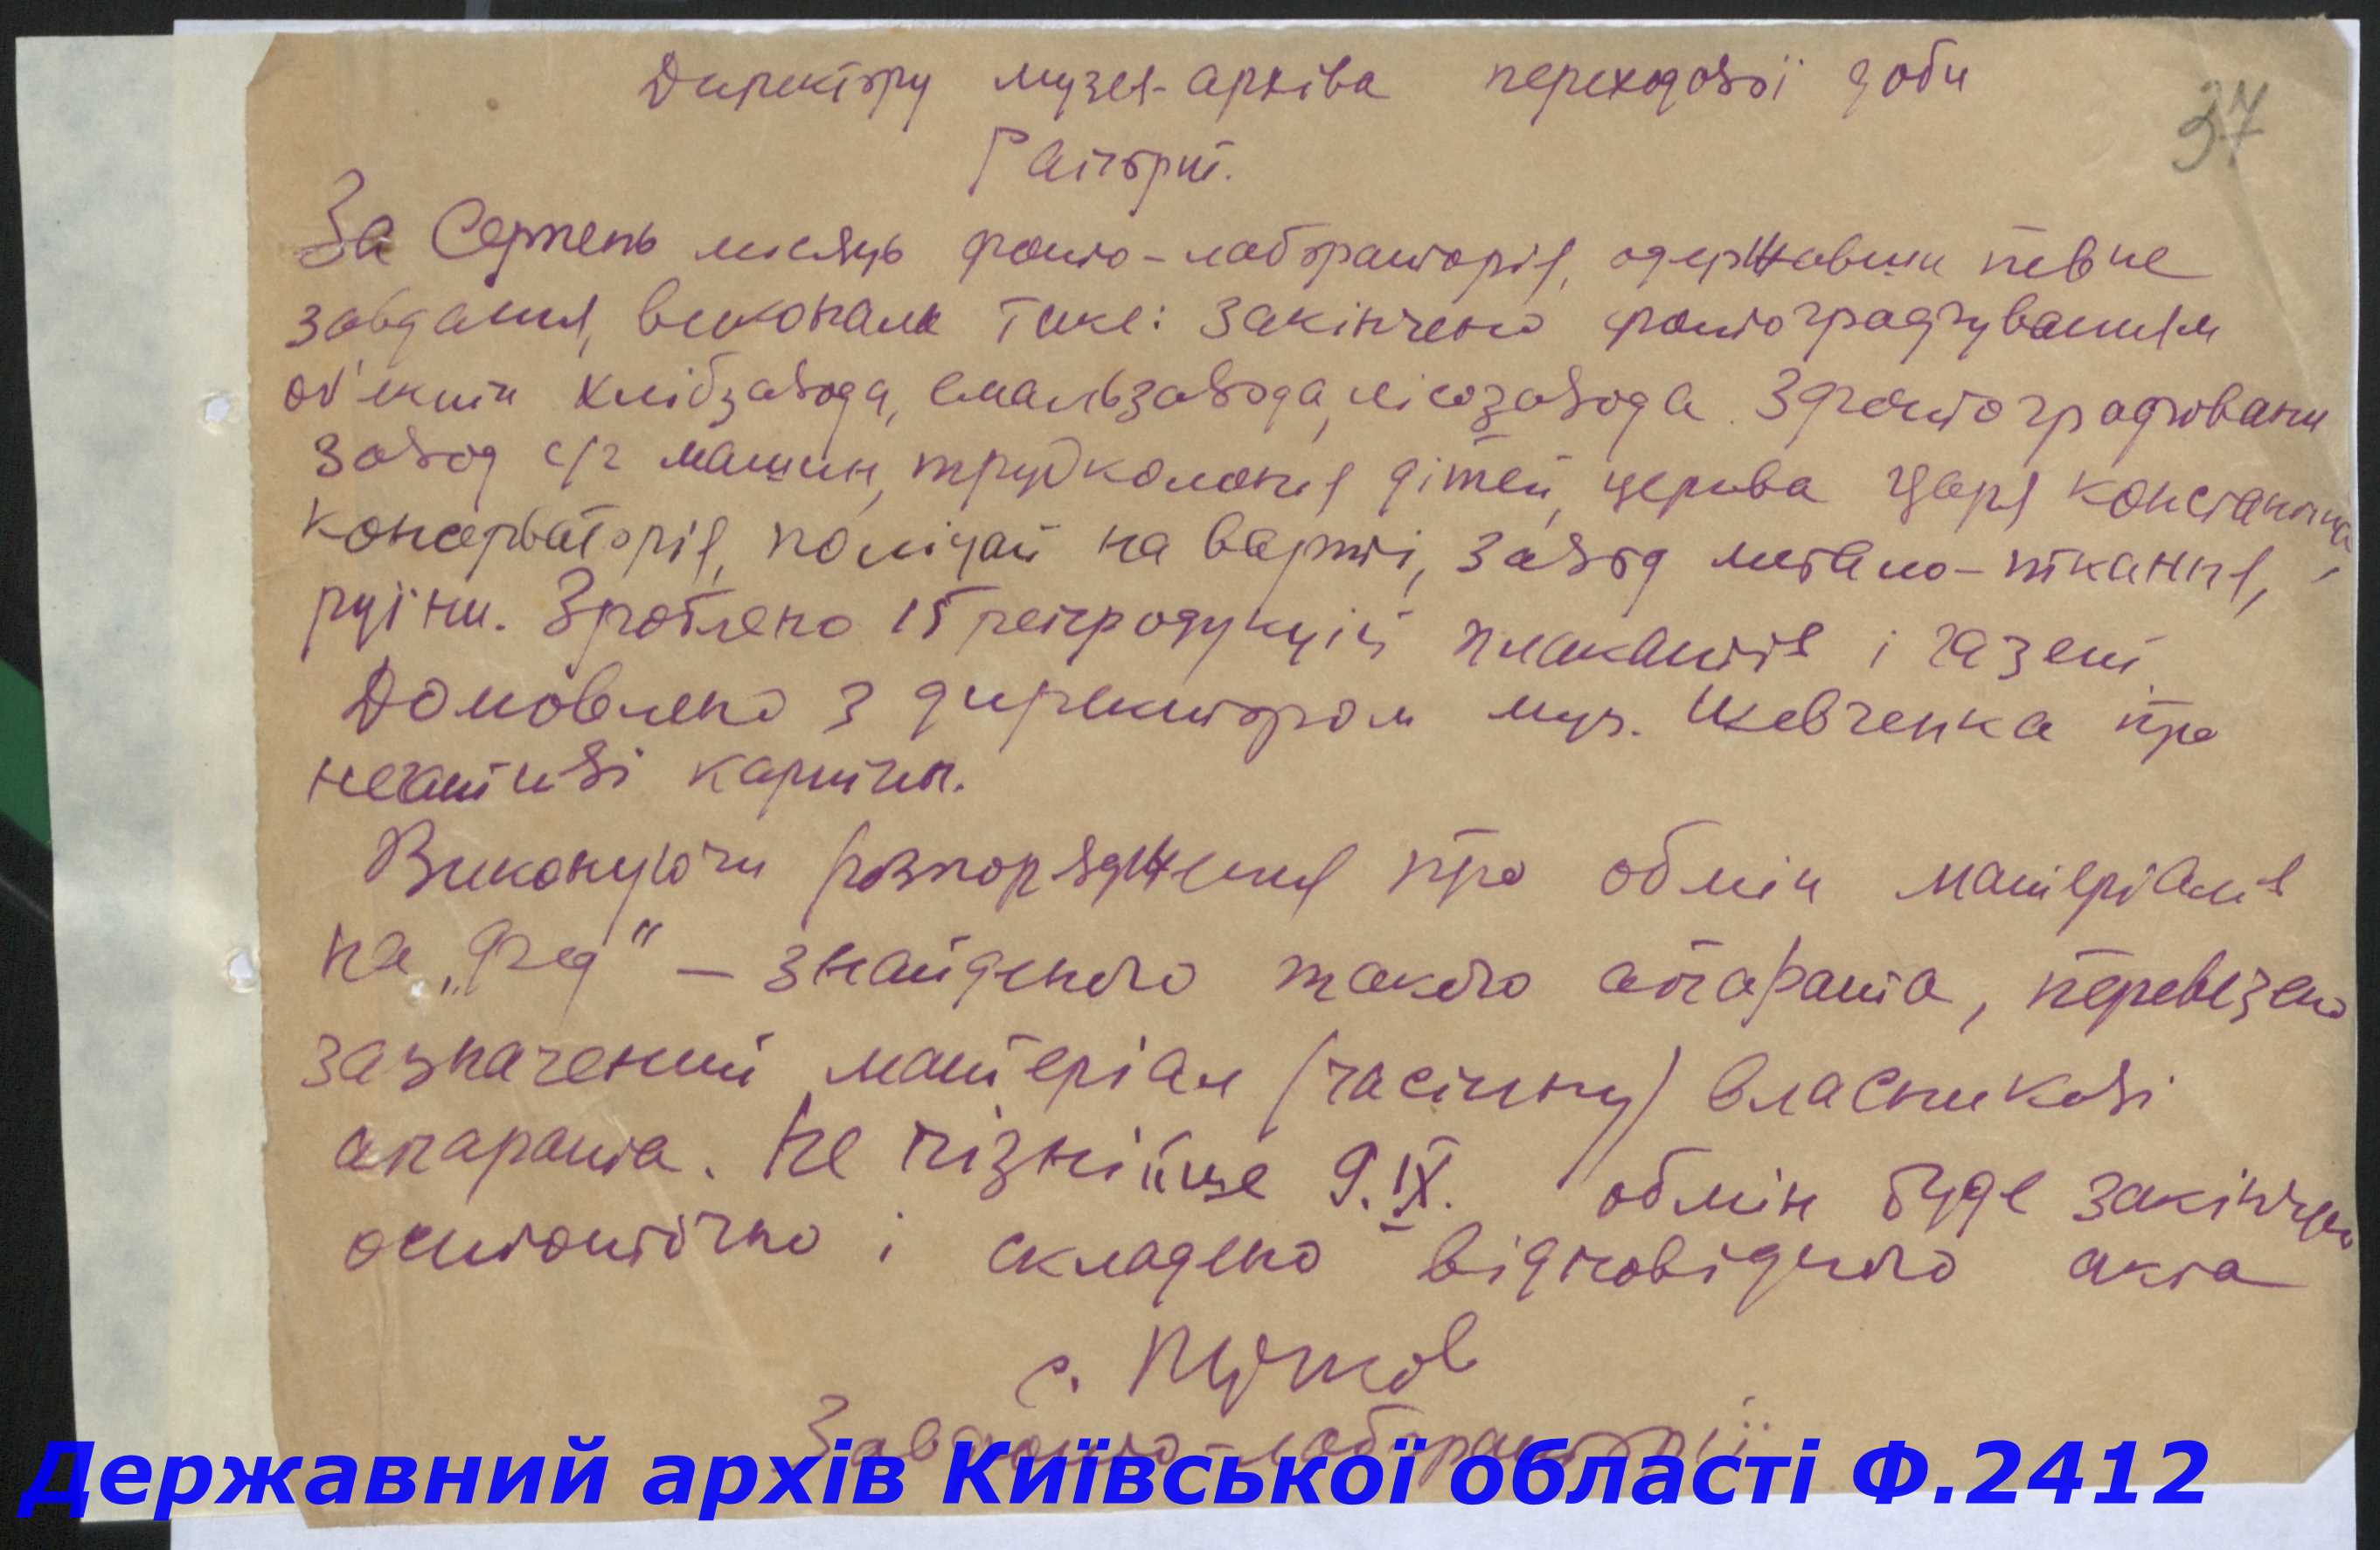 Директору музея-архіва переходової доби
37
Рапорт.
За Серпень місяць фото-лабораторія, одержавши певне
завдання, виконала таке: закінчено фотографуванням
об'єкти хлібзавода, емальзавода, лісозавода. Зфотографовани
завод с/г машин, трудколонія дітей, церква Царя Константина
консерваторія, поліцай на варті, завод метало-ткання,
руїни. Зроблено 15 репродукцій плакатів і газет.
Домовлено з директором муз. Шевченка про
негативі картин.
Виконуючи розпорядження про обмін матеріалів
на „Фед" — знайденого такого апарата, перевезено
зазначений матеріал (частину) власникові
апарата. Не пізнійше 9.IX. обмін буде закінчен
остаточно і складено відповідного акта
С.
Зав фото-лабораторії
Державний архів Київської області Ф.2412